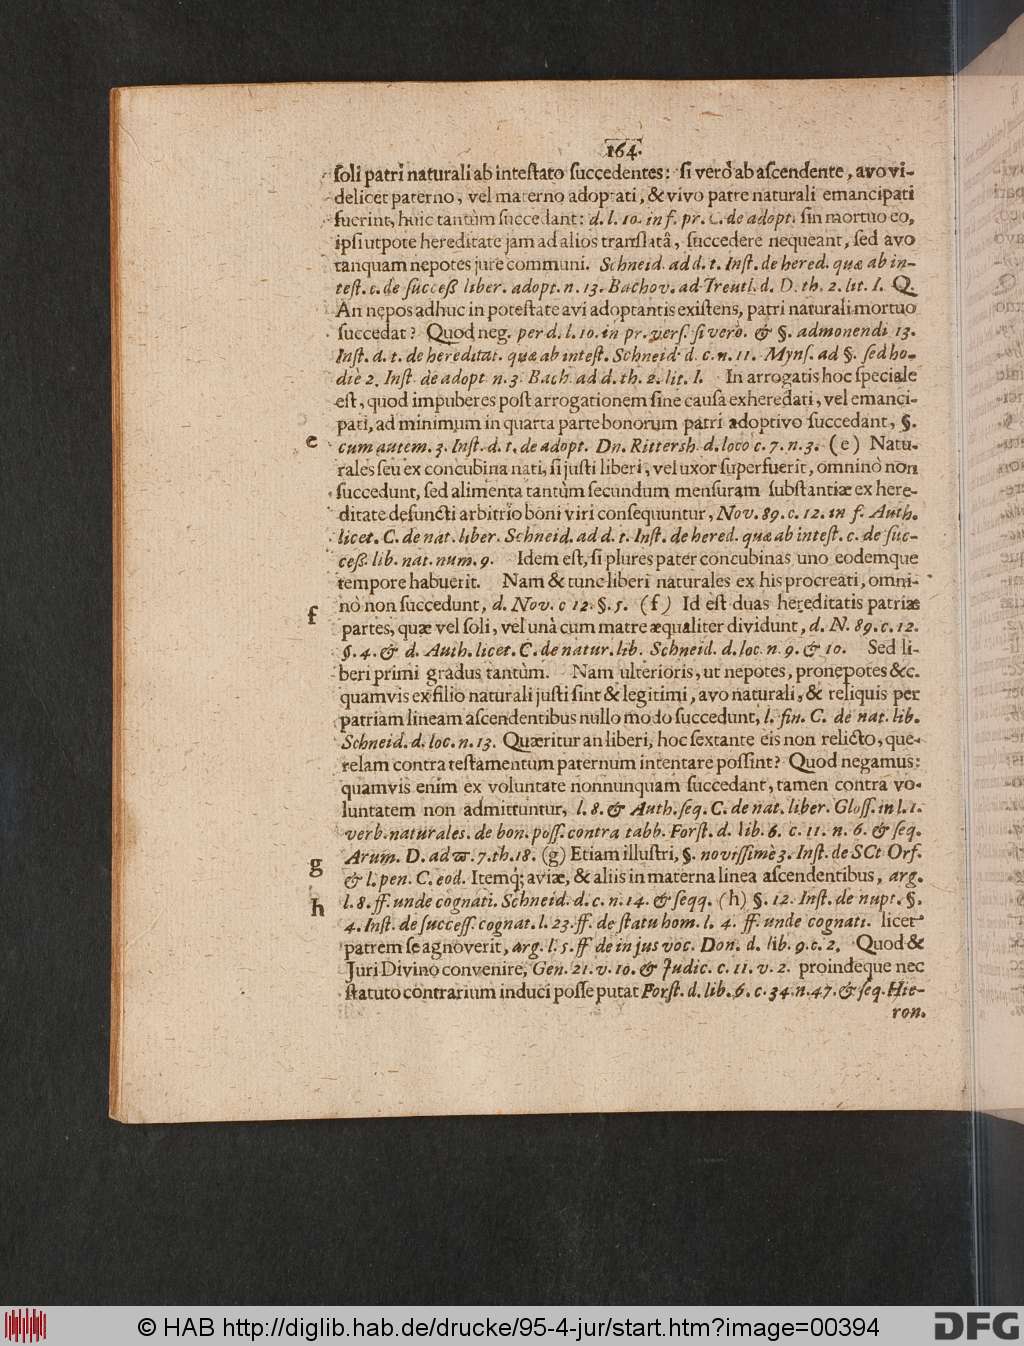 164.
soli patri naturali ab intestato succedentes: si verò ab ascendente, avo vi-
delicet paterno, vel materno adoptati, & vivo patre naturali emancipati
fuerint, huic tantùm succedant: d. l. 10. in f. pr. C. de adopt. sin mortuo eo,
ipsi utpote hereditate jam ad alios translatâ, succedere nequeant, sed avo
tanquam nepotes jure communi. Schneid. ad d. t. Inst. de hered. quæ ab in-
test. c. de success liber. adopt. n. 13. Bachov. ad Treutl. d. D. th. 2. lit. I. Q.
An nepos adhuc in potestate avi adoptantis existens, patri naturali mortuo
succedat? Quod neg. per d. l. 10. in pr. vers. si vero. & §. admonendi 13.
Inst. d. t. de hereditat. quæ ab intest. Schneid. d. c. n. 11. Myns. ad §. sed ho-
diè 2. Inst. de adopt. n. 3. Bach. ad d. th. 2. lit. I. In arrogatis hoc speciale
est, quod impuberes post arrogationem sine causa exheredati, vel emanci-
pati, ad minimum in quarta parte bonorum patri adoptivo succedant, §.
e cum autem. 3. Inst. d. t. de adopt. Dn. Rittersh. d. loco c. 7. n. 3. (e) Natu-
rales seu ex concubina nati, si justi liberi, vel uxor superfuerit, omninò non
succedunt, sed alimenta tantùm secundum mensuram substantiæ ex here-
ditate defuncti arbitrio boni viri consequuntur, Nov. 89. c. 12. in f. Auth.
licet. C. de nat. liber. Schneid. ad d. t. Inst. de hered. quæ ab intest. c. de suc-
cess. lib. nat. num. 9. Idem est, si plures pater concubinas uno eodemque
tempore habuerit. Nam & tunc liberi naturales ex his procreati, omni-
f nò non succedunt, d. Nov. c 12. §. 5. (f) Id est duas hereditatis patriæ
partes, quæ vel soli, vel unà cum matre æqualiter dividunt, d. N. 89. c. 12.
§. 4. & d. Auth. licet. C. de natur. lib. Schneid. d. loc. n. 9. & 10. Sed li-
beri primi gradus tantùm. Nam ulterioris, ut nepotes, pronepotes &c.
quamvis ex filio naturali justi sint & legitimi, avo naturali, & reliquis per
patriam lineam ascendentibus nullo modo succedunt, l. fin. C. de nat. lib.
Schneid. d. loc. n. 13. Quæritur an liberi, hoc sextante eis non relicto, que-
relam contra testamentum paternum intentare possint? Quod negamus:
quamvis enim ex voluntate nonnunquam succedant, tamen contra vo-
luntatem non admittuntur, l. 8. & Auth. seq. C. de nat. liber. Gloss. in l. 1.
verb. naturales. de bon. poss. contra tabb. Forst. d. lib. 6. c. 11. n. 6. & seq.
g Arum. D. ad ϖ. 7. th. 18. (g) Etiam illustri, §. novissimè 3. Inst. de SCt Orf.
& l. pen. C. eod. Itemq; aviæ, & aliis in materna linea ascendentibus, arg.
h l. 8. ff. unde cognati. Schneid. d. c. n. 14. & seqq. (h) §. 12. Inst. de nupt. §.
4. Inst. de success. cognat. l. 23. ff. de statu hom. l. 4. ff. unde cognati. licet
patrem se agnoverit, arg. l. 5. ff de in jus voc. Don. d. lib. 9. c. 2. Quod &
Juri Divino convenire, Gen. 21. v. 10. & Judic. c. 11. v. 2. proindeque nec
statuto contrarium induci posse putat Forst. d. lib. 6. c. 34. n. 47. & seq. Hie-
ron.
© HAB http://diglib.hab.de/drucke/95-4-jur/start.htm?image=00394
DFG